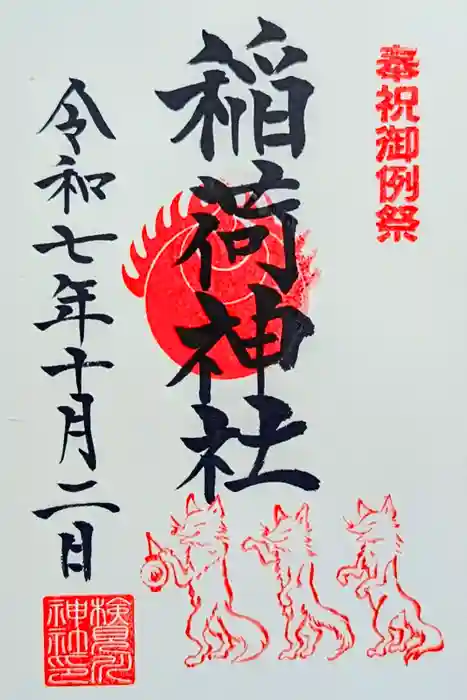 奉祝御例祭
稲荷神社
令和七年十月二日
検見川神社印